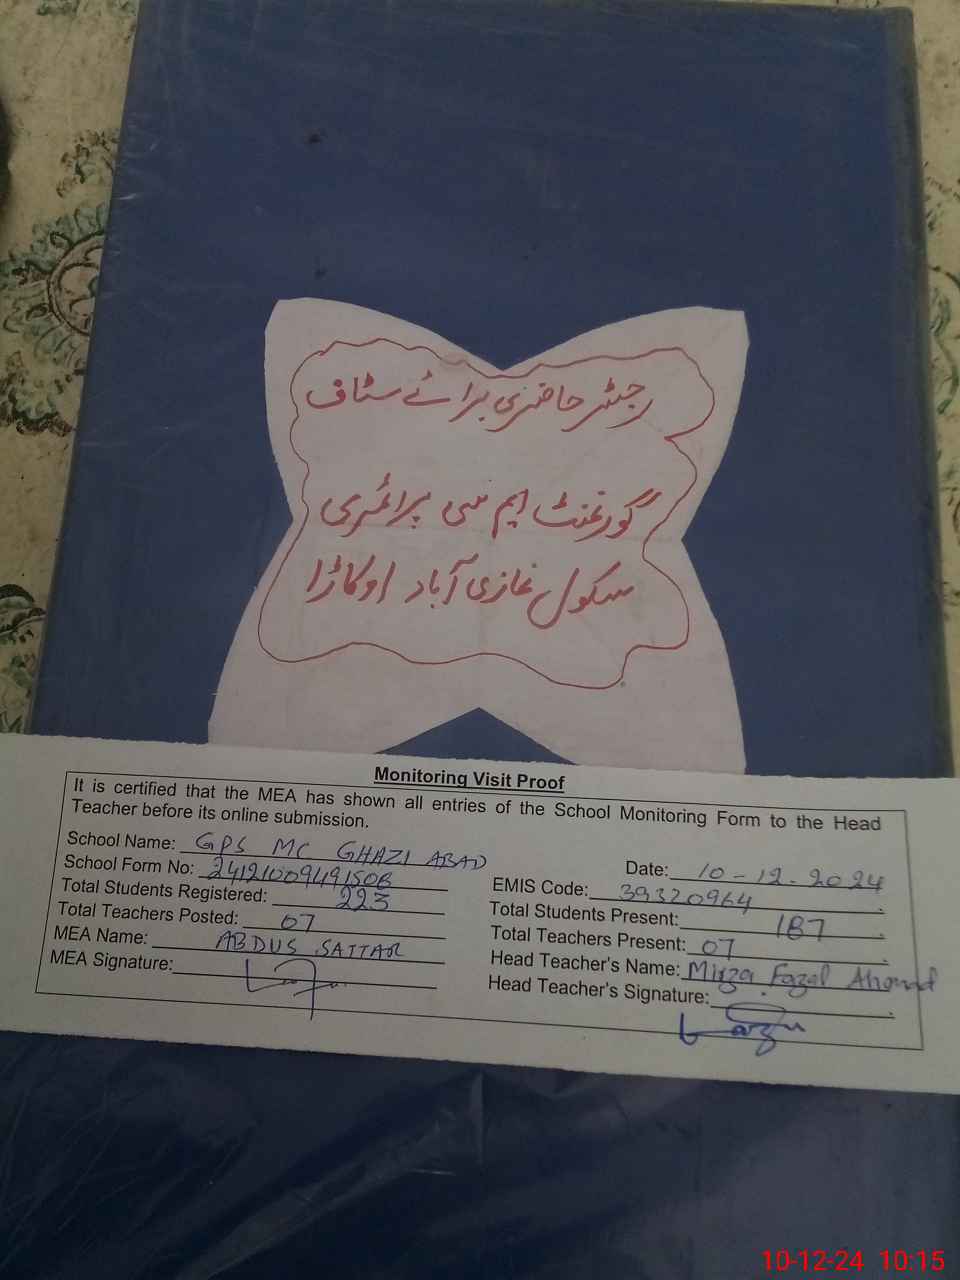 رجسٹر حاضری برائے سٹاف
گورنمنٹ ایم سی پرائمری
سکول غازی آباد اوکاڑا
Monitoring Visit Proof
It is certified that the MEA has shown all entries of the School Monitoring Form to the Head
Teacher before its online submission.
School Name: GPS MC GHAZI ABAD
Date: 10-12-2024
School Form No:
EMIS Code: 39320964
Total Students Registered: 223
Total Students Present: 187
Total Teachers Posted: 07
Total Teachers Present: 07
MEA Name: ABDUS SATTAR
Head Teacher's Name: Mirza Fazal Ahmad
MEA Signature:
Head Teacher's Signature:
10-12-24 10:15